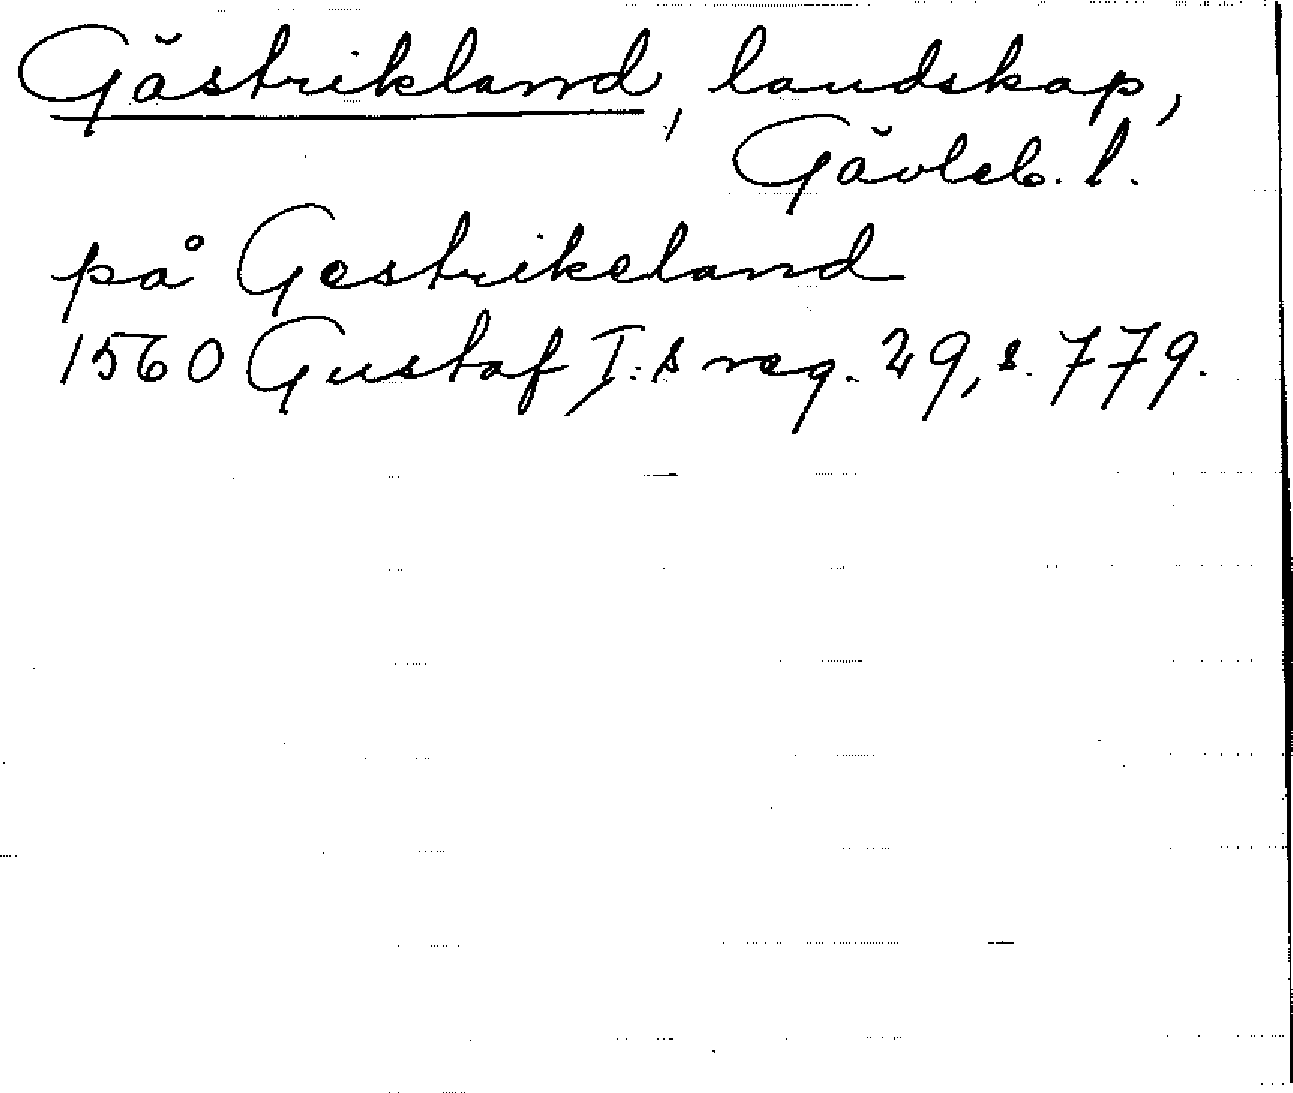 Gästrikland, landskap,
Gävleb. l.
på Gestrikeland
1560 Gustaf I:s reg. 29, s. 779.